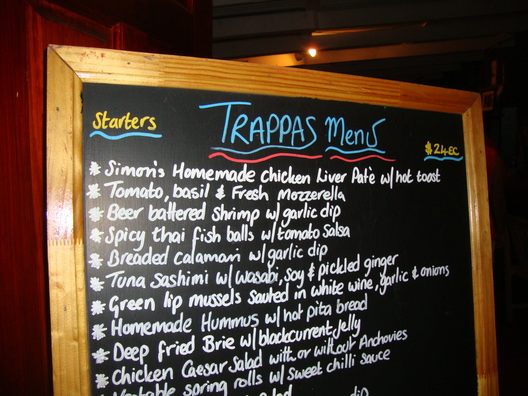 Starters
TRAPPAS Menu
$24EC
* Simon's Homemade chicken Liver Patè w/ hot toast
* Tomato, basil & Fresh Mozzerella
* Beer battered Shrimp w/ garlic dip
* Spicy thai fish balls w/ tomato salsa
* Breaded calamari w/ garlic dip
* Tuna Sashimi w/ wasabi, soy & pickled ginger
* Green lip mussels sauted in white wine, garlic & onions
* Homemade Hummus w/ hot pita bread
* Deep fried Brie w/ blackcurrent Jelly
* Chicken Caesar Salad with or without Anchovies
Vegetable spring rolls w/ sweet chilli sauce
dip